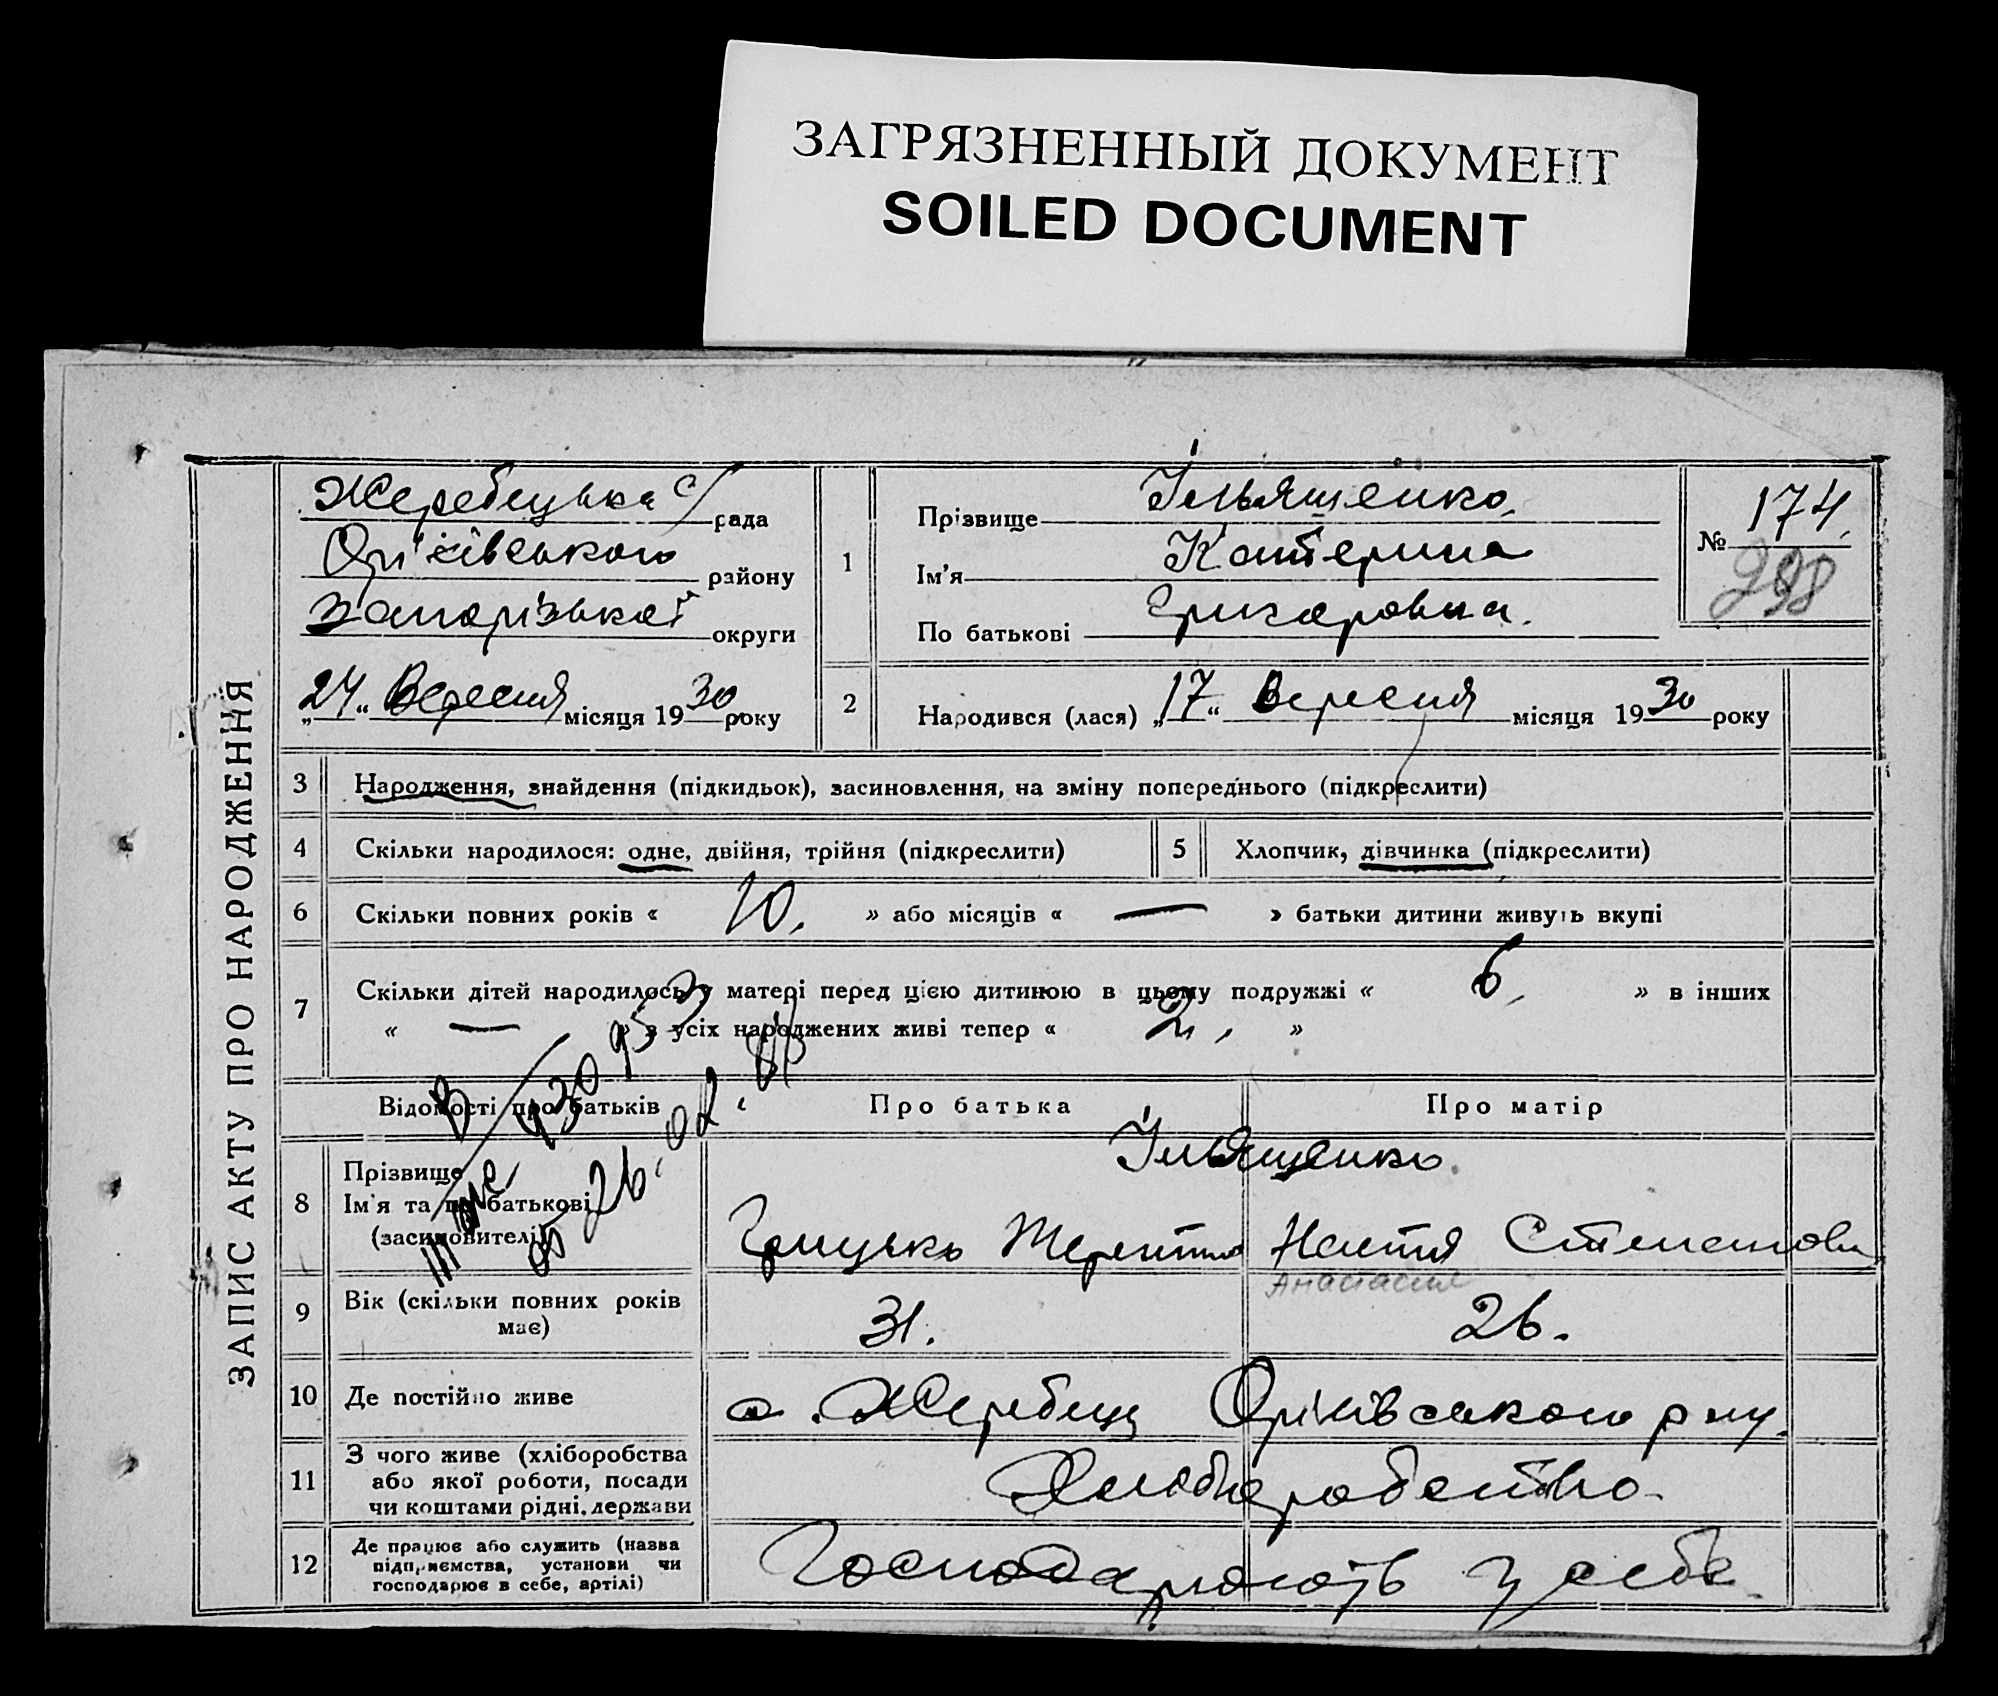 ЗАГРЯЗНЕННЫЙ ДОКУМЕНТ
SOILED DOCUMENT
ЗАПИС АКТУ ПРО НАРОДЖЕННЯ
Жеребецька с/рада
Оріхівського району
Запорізької округи
„24“ Вересня місяця 1930 року
1
Прізвище Ільященко
Ім'я Катерина
По батькові Григоровна.
№ 174.
998
2
Народився (лася) „17“ Вересня місяця 1930 року
3 Народження, знайдення (підкидьок), засиновлення, на зміну попереднього (підкреслити)
4 Скільки народилося: одне, двійня, трійня (підкреслити) 5 Хлопчик, дівчинка (підкреслити)
6 Скільки повних років « 10. » або місяців « — » батьки дитини живуть вкупі
7 Скільки дітей народилось у матері перед цією дитиною в цьому подружжі « 6, » в інших
« — » з усіх народжених живі тепер « 2, »
Відомості про батьків Про батька Про матір
Ільященко
8 Прізвище
Ім'я та по батькові
(засиновителі)
Грицько Терентов Настя Степанов
Анастасия
9 Вік (скільки повних років має) 31. 26.
10 Де постійно живе с. Жеребець Оріхівського р-ну.
11 З чого живе (хліборобства
або якої роботи, посади
чи коштами рідні, держави
Хліборобство.
12 Де працює або служить (назва
підприємства, установи чи
господарює в себе, артілі)
Господарюють у себе.
26.02.